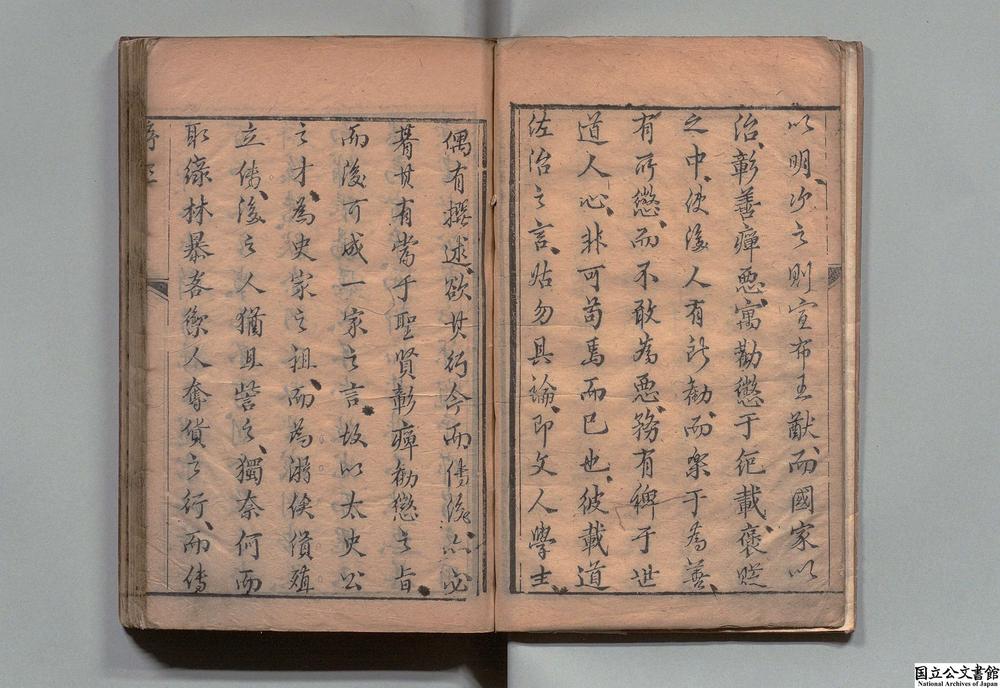 以明、次之則宣布王猷、而國家以
治、彰善癉惡、寓勸懲于紀載、褒貶
之中、使後人有所勸、而樂于為善、
有所懲、而不敢為惡、務有稗于世
道人心、非可苟焉而已也、彼載道
佐治之言、姑勿具論、即文人學士、
偶有撰述、欲其行今而傳後、亦必
著其有當于聖賢彰癉勸懲之旨、
而後可成一家之言、故以太史公
之才、為史家之祖、而為游俠貨殖
立傳、後之人猶且訾之、獨奈何而
取綠林暴客禦人奪貨之行、而傳
国立公文書館
National Archives of Japan